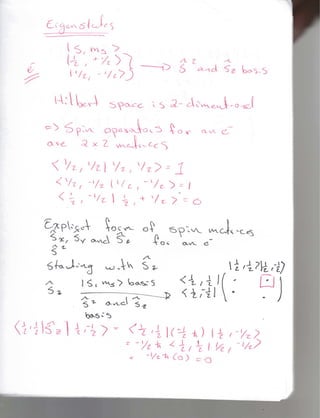 Eigenstates
|s, ms>
e⁻ |½, +½>} → ŝ² and ŝz basis
|½, -½>}
Hilbert space is 2-dimentional
=> Spin operators for an e⁻
are 2x2 matrices
<½, ½|½, ½> = 1
<½, -½|½, -½> = 1
<½, -½|½, +½> = 0
Explicit form of spin matrices
ŝx, ŝy and ŝz for an e⁻
ŝ²
Starting with ŝz
|½,½>|½,-½>
ŝz |s, ms> basis <½,½| ( . . )
ŝ² and ŝz <½,-½| ( . . )
basis
<½,½|ŝz|½,-½> = <½,½|(-½ ħ)|½,-½>
= -½ ħ <½,½|½,-½>
= -½ ħ (0) = 0